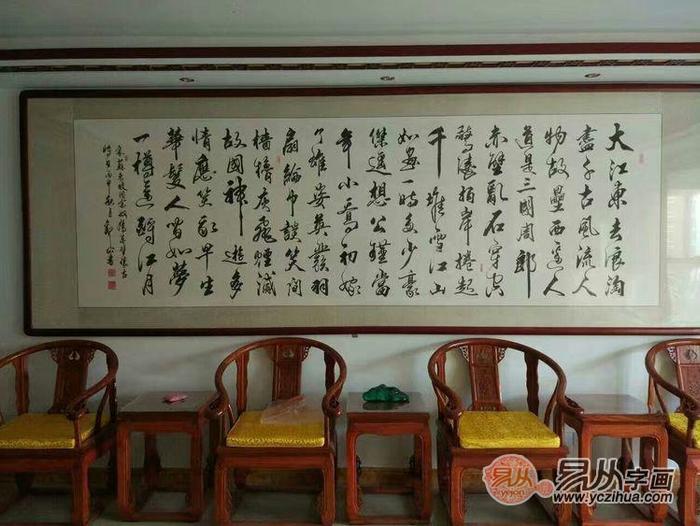 大江東去浪淘
盡千古風流人
物故壘西邊人
道是三國周郎
赤壁亂石穿空
驚濤拍岸捲起
千堆雪江山
如畫一時多少豪
傑遥想公瑾當
年小喬初嫁
了雄姿英發羽
扇綸巾談笑间
檣櫓灰飛煙滅
故國神遊多
情應笑我早生
華髮人間如夢
一樽還酹江月
時在丙申秋月
易从字画
www.yczihua.com